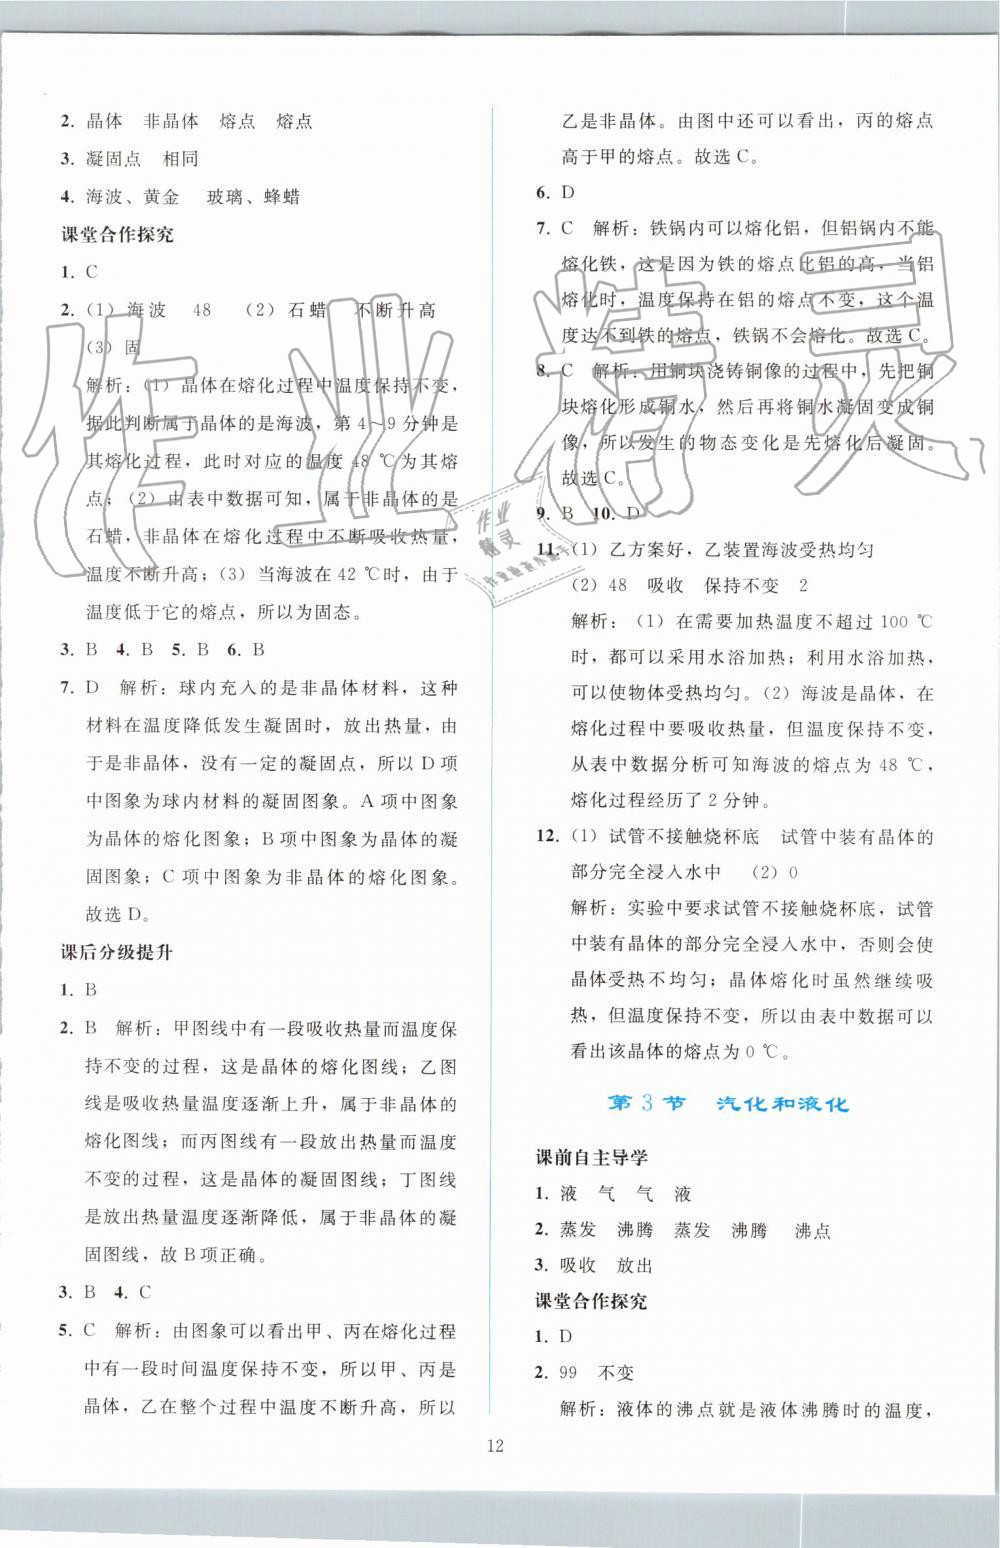 2. 晶体　非晶体　熔点　熔点
3. 凝固点　相同
4. 海波、黄金　玻璃、蜂蜡
课堂合作探究
1. C
2. (1) 海波　48　(2) 石蜡　不断升高
(3) 固
解析：(1) 晶体在熔化过程中温度保持不变，
据此判断属于晶体的是海波，第 4～9 分钟是
其熔化过程，此时对应的温度 48 ℃为其熔
点；(2) 由表中数据可知，属于非晶体的是
石蜡，非晶体在熔化过程中不断吸收热量，
温度不断升高；(3) 当海波在 42 ℃时，由于
温度低于它的熔点，所以为固态。
3. B 4. B 5. B 6. B
7. D　解析：球内充入的是非晶体材料，这种
材料在温度降低发生凝固时，放出热量，由
于是非晶体，没有一定的凝固点，所以 D 项
中图象为球内材料的凝固图象。A 项中图象
为晶体的熔化图象；B 项中图象为晶体的凝
固图象；C 项中图象为非晶体的熔化图象。
故选 D。
课后分级提升
1. B
2. B　解析：甲图线中有一段吸收热量而温度保
持不变的过程，这是晶体的熔化图线；乙图
线是吸收热量温度逐渐上升，属于非晶体的
熔化图线；而丙图线有一段放出热量而温度
不变的过程，这是晶体的凝固图线；丁图线
是放出热量温度逐渐降低，属于非晶体的凝
固图线，故 B 项正确。
3. B 4. C
5. C　解析：由图象可以看出甲、丙在熔化过程
中有一段时间温度保持不变，所以甲、丙是
晶体，乙在整个过程中温度不断升高，所以
乙是非晶体。由图中还可以看出，丙的熔点
高于甲的熔点。故选 C。
6. D
7. C　解析：铁锅内可以熔化铝，但铝锅内不能
熔化铁，这是因为铁的熔点比铝的高，当铝
熔化时，温度保持在铝的熔点不变，这个温
度达不到铁的熔点，铁锅不会熔化。故选 C。
8. C　解析：用铜块浇铸铜像的过程中，先把铜
块熔化形成铜水，然后再将铜水凝固变成铜
像，所以发生的物态变化是先熔化后凝固。
故选 C。
9. B 10. D
11. (1) 乙方案好，乙装置海波受热均匀
(2) 48　吸收　保持不变　2
解析：(1) 在需要加热温度不超过 100 ℃
时，都可以采用水浴加热；利用水浴加热，
可以使物体受热均匀。(2) 海波是晶体，在
熔化过程中要吸收热量，但温度保持不变，
从表中数据分析可知海波的熔点为 48 ℃，
熔化过程经历了 2 分钟。
12. (1) 试管不接触烧杯底　试管中装有晶体的
部分完全浸入水中　(2) 0
解析：实验中要求试管不接触烧杯底，试管
中装有晶体的部分完全浸入水中，否则会使
晶体受热不均匀；晶体熔化时虽然继续吸
热，但温度保持不变，所以由表中数据可以
看出该晶体的熔点为 0 ℃。
第 3 节　汽化和液化
课前自主导学
1. 液　气　气　液
2. 蒸发　沸腾　蒸发　沸腾　沸点
3. 吸收　放出
课堂合作探究
1. D
2. 99　不变
解析：液体的沸点就是液体沸腾时的温度，
12
作业精灵
作业
精灵